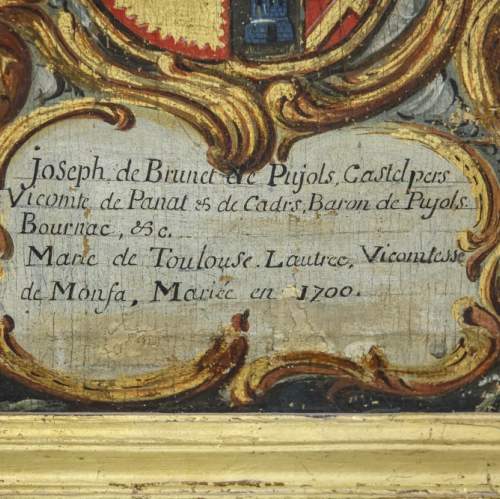 Joseph de Brunet de Pujols, Castelpers
Vicomte de Panat & de Cadrs, Baron de Pujols
Bournac, &c.
Marie de Toulouse. Lautrec, Vicomtesse
de Monfa, Mariée en 1700.